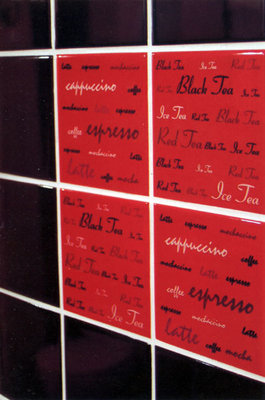 latte espresso mochaccino
cappuccino coffee
mochaccino latte espresso
coffee espresso
espresso coffee latte
mochaccino
latte coffee mocha
Black Tea Ice Tea Red Tea
Red Tea Black Tea Ice Tea
Ice Tea Red Tea Black Tea
Red Tea Black Tea Ice Tea
Black Tea Ice Tea Red Tea
Red Tea Black Tea Ice Tea
Black Tea Ice Tea
Red Tea Black Tea
Ice Tea Red Tea
Red Tea Black Tea
Black Tea Ice Tea
Red Tea Black Tea Ice Tea
latte espresso mochaccino
cappuccino coffee
mochaccino latte espresso
coffee espresso
espresso coffee
mochaccino
latte coffee mocha